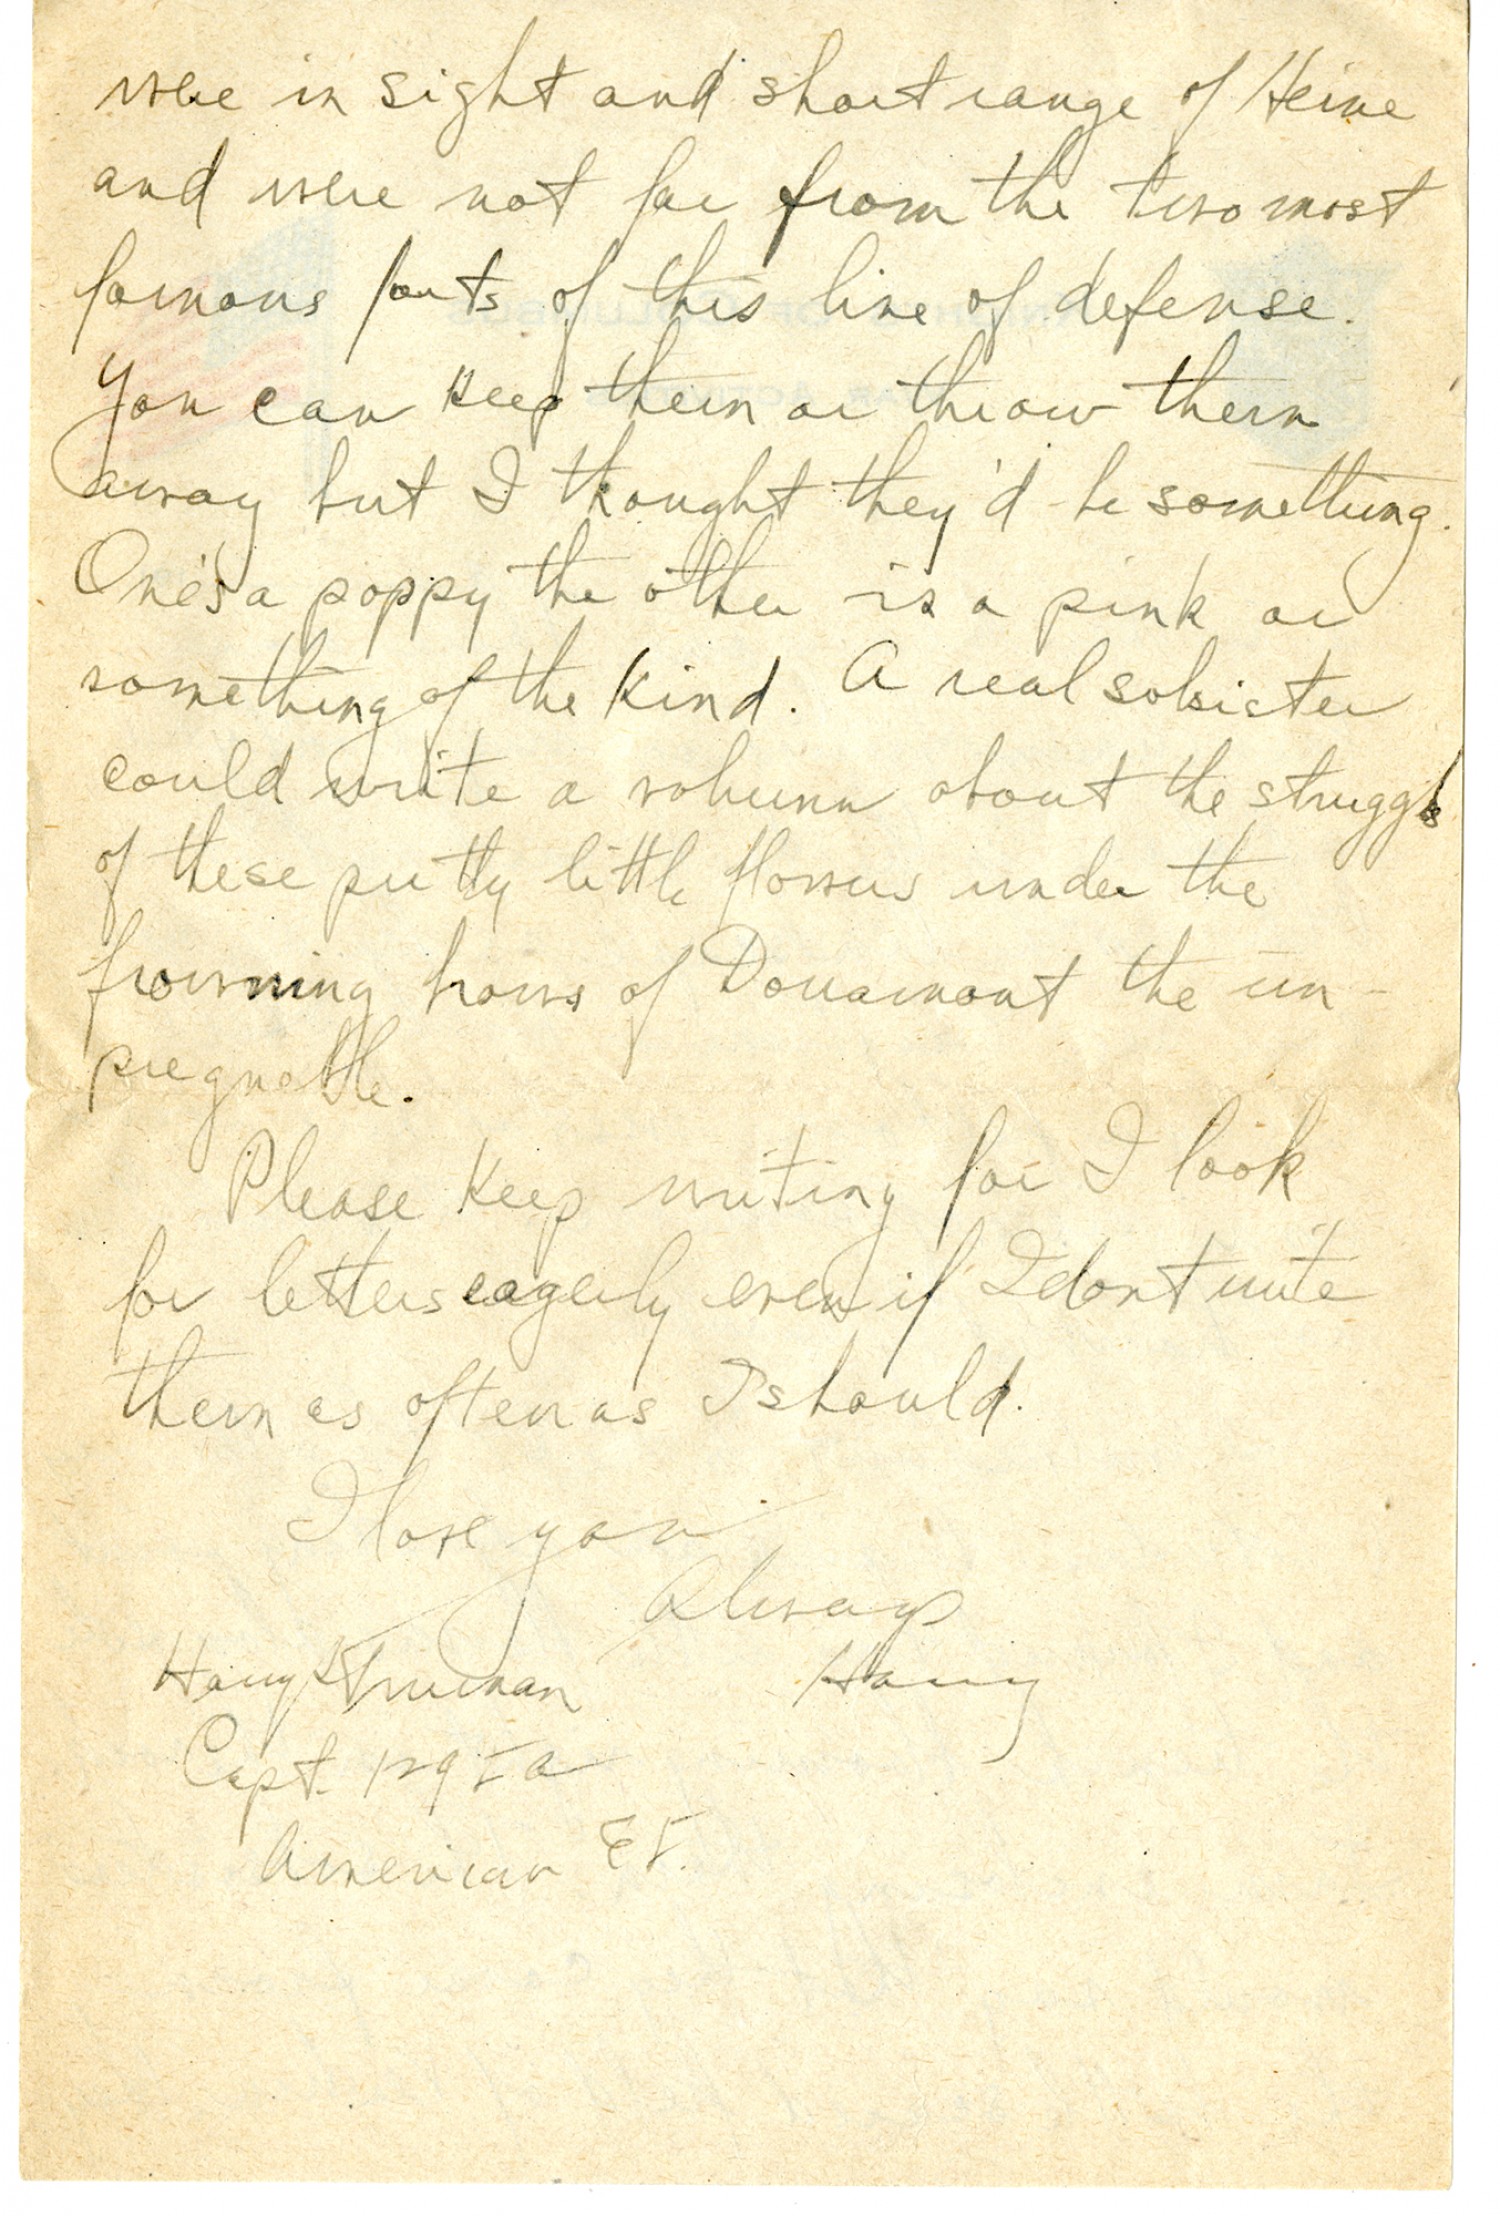 were in sight and short range of Heine
and were not far from the two most
famous forts of this line of defense.
You can keep them or throw them
away but I thought they'd be something.
One's a poppy the other is a pink or
something of the kind. A real sobsister
could write a volumn about the struggle
of these pretty little flowers under the
frowning brows of Douaumont the un-
pregnable.
Please keep writing for I look
for letters eagerly even if I dont write
them as often as I should.
I love you
Always
Harry
Harry S Truman
Capt. 129 FA
American EF.